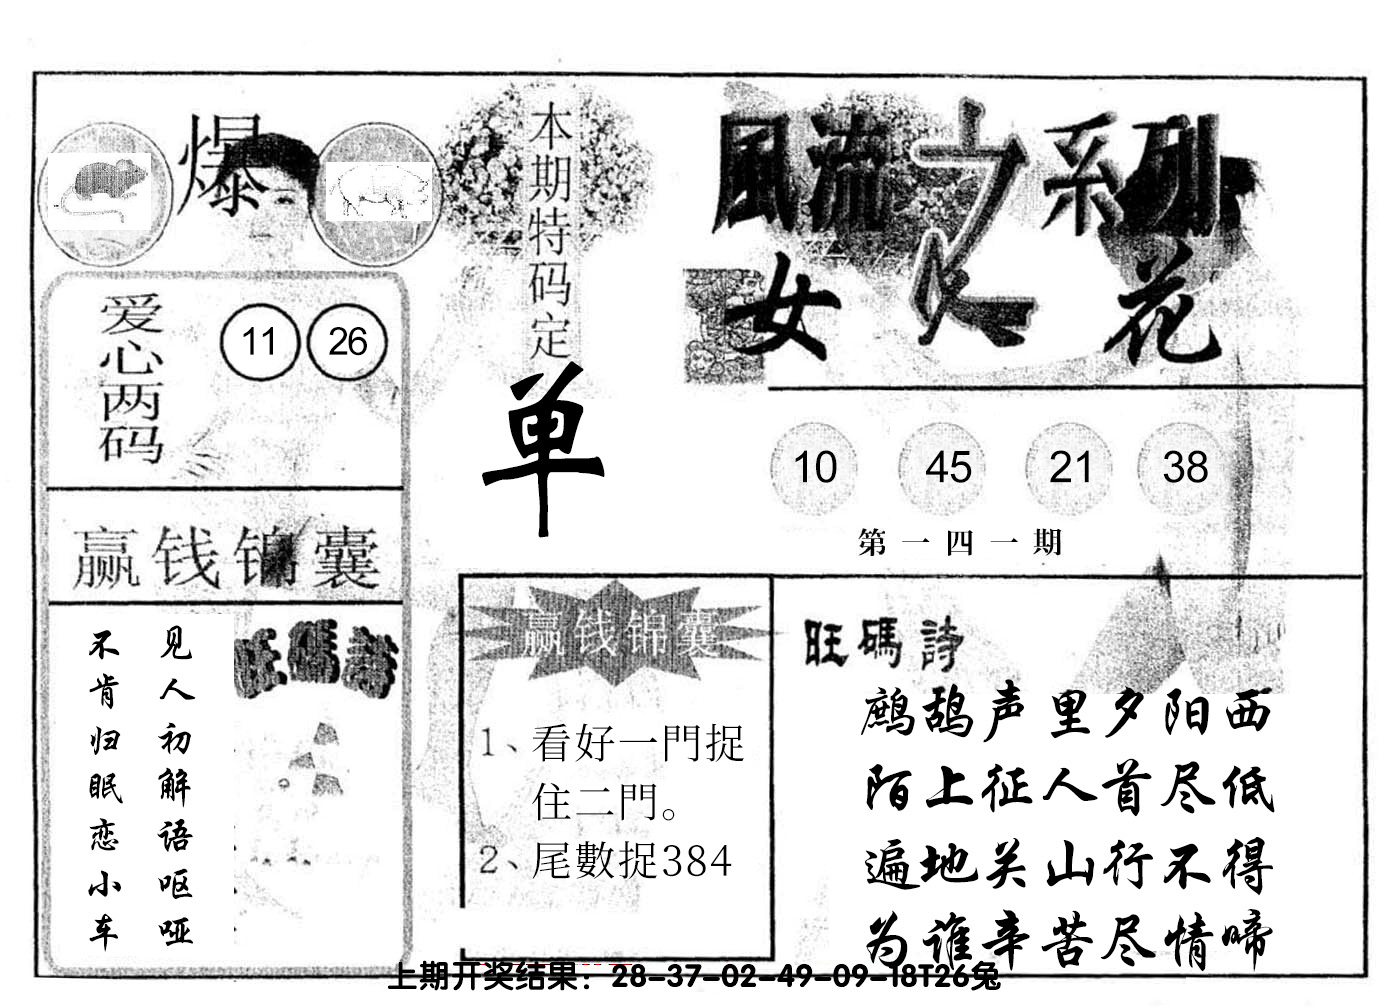 爆
爱心两码
11 26
赢钱锦囊
见人初解语呕哑
不肯归眠恋小车
旺碼詩
本期特码定
单
風流之系列
女人花
10 45 21 38
第一四一期
赢钱锦囊
1、看好一門捉
住二門。
2、尾數捉384
旺碼詩
鹧鸪声里夕阳西
陌上征人首尽低
遍地关山行不得
为谁辛苦尽情啼
上期开奖结果：28-37-02-49-09-18T26兔